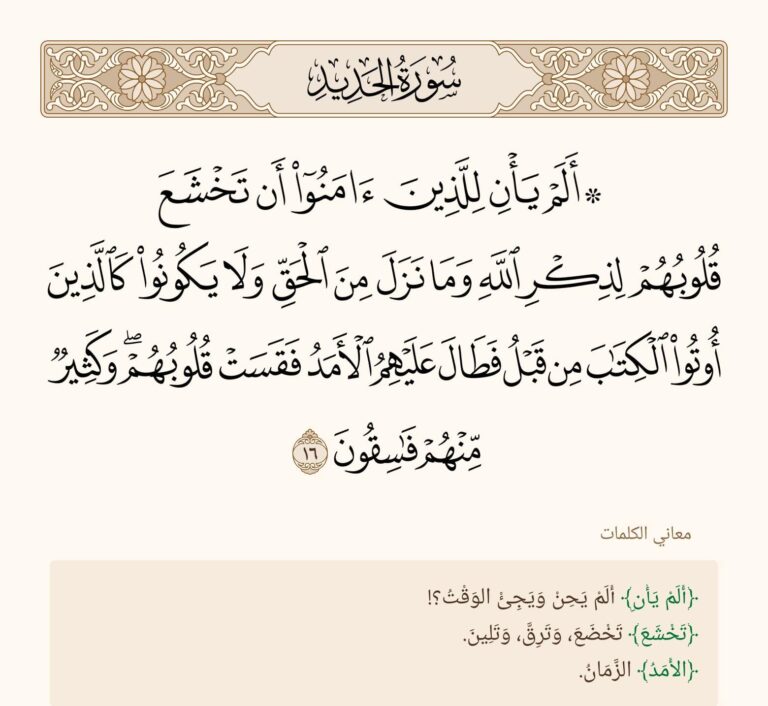 سُورَةُ الحَدِيدِ
۞ أَلَمْ يَأْنِ لِلَّذِينَ ءَامَنُوٓاْ أَن تَخْشَعَ
قُلُوبُهُمْ لِذِكْرِ ٱللَّهِ وَمَا نَزَلَ مِنَ ٱلْحَقِّ وَلَا يَكُونُواْ كَٱلَّذِينَ
أُوتُواْ ٱلْكِتَٰبَ مِن قَبْلُ فَطَالَ عَلَيْهِمُ ٱلْأَمَدُ فَقَسَتْ قُلُوبُهُمْۖ وَكَثِيرٌ
مِّنْهُمْ فَٰسِقُونَ ١٦
معاني الكلمات
﴿أَلَمْ يَأْنِ﴾ أَلَمْ يَحِنْ وَيَجِئْ الوَقْتُ؟!
﴿تَخْشَعَ﴾ تَخْضَعَ، وَتَرِقَّ، وَتَلِينَ.
﴿الأَمَدُ﴾ الزَّمَانُ.